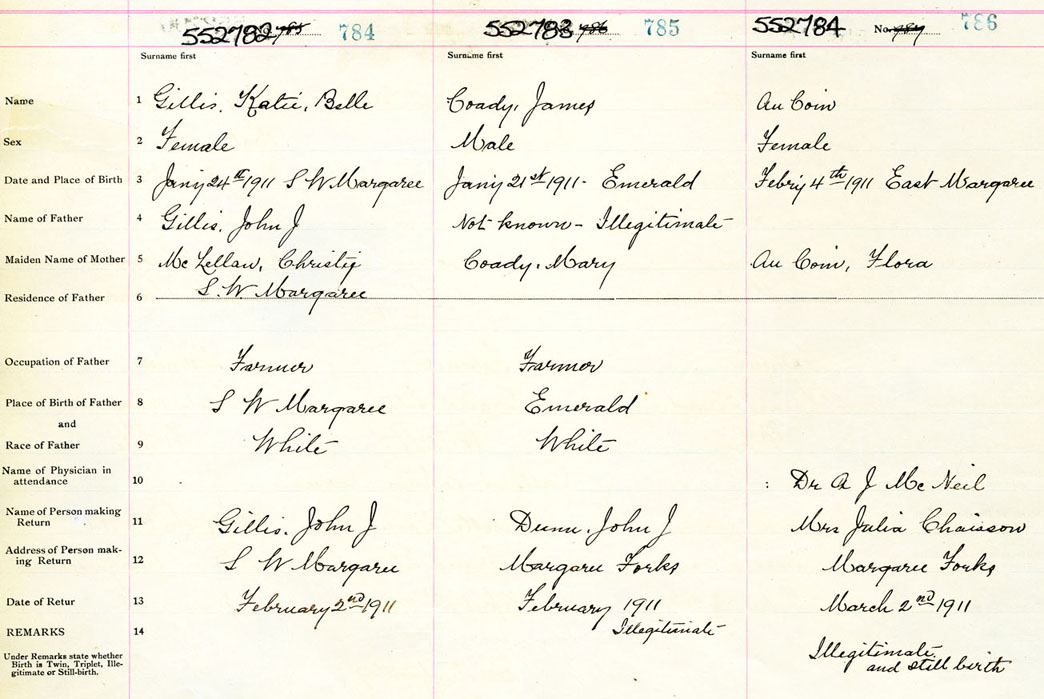 552782 785 784 552783 786 785 552784 No. 787 786
Surname first Surname first Surname first
Name 1 Gillis, Katie, Belle Coady, James Au Coin
Sex 2 Female Male Female
Date and Place of Birth 3 Jany 24th 1911 S W Margaree Jany 21st 1911 - Emerald Febry 4th 1911 East Margaree
Name of Father 4 Gillis, John J Not known - Illegitimate
Maiden Name of Mother 5 Mc Lellan, Christy Coady, Mary Au Coin, Flora
Residence of Father 6 S. W. Margaree
Occupation of Father 7 Farmer Farmer
Place of Birth of Father 8 S W Margaree Emerald
and
Race of Father 9 White White
Name of Physician in
attendance 10 Dr A J Mc Neil
Name of Person making
Return 11 Gillis, John J Dunn, John J Mrs Julia Chaisson
Address of Person mak-
ing Return 12 S W Margaree Margaree Forks Margaree Forks
Date of Retur 13 February 2nd 1911 February 1911 March 2nd 1911
REMARKS 14 Illegitimate Illegitimate
and still birth
Under Remarks state whether
Birth is Twin, Triplet, Ille-
gitimate or Still-birth.